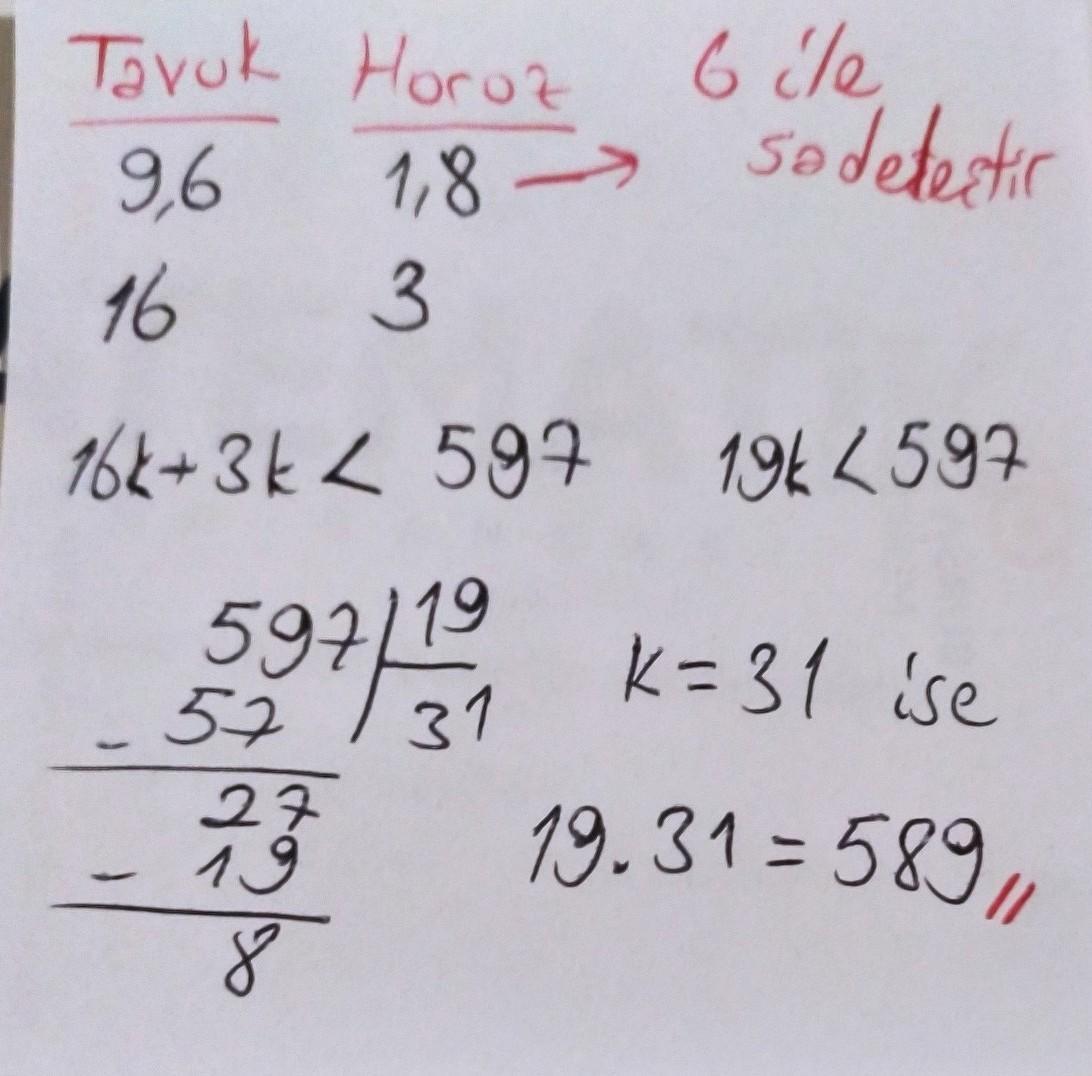 Tavuk Horoz 6 ile
9,6 1,8 → sadeleştir
16 3
16k+3k < 597 19k < 597
597 19
- 57 31 k = 31 ise
27
- 19 19.31 = 589
8